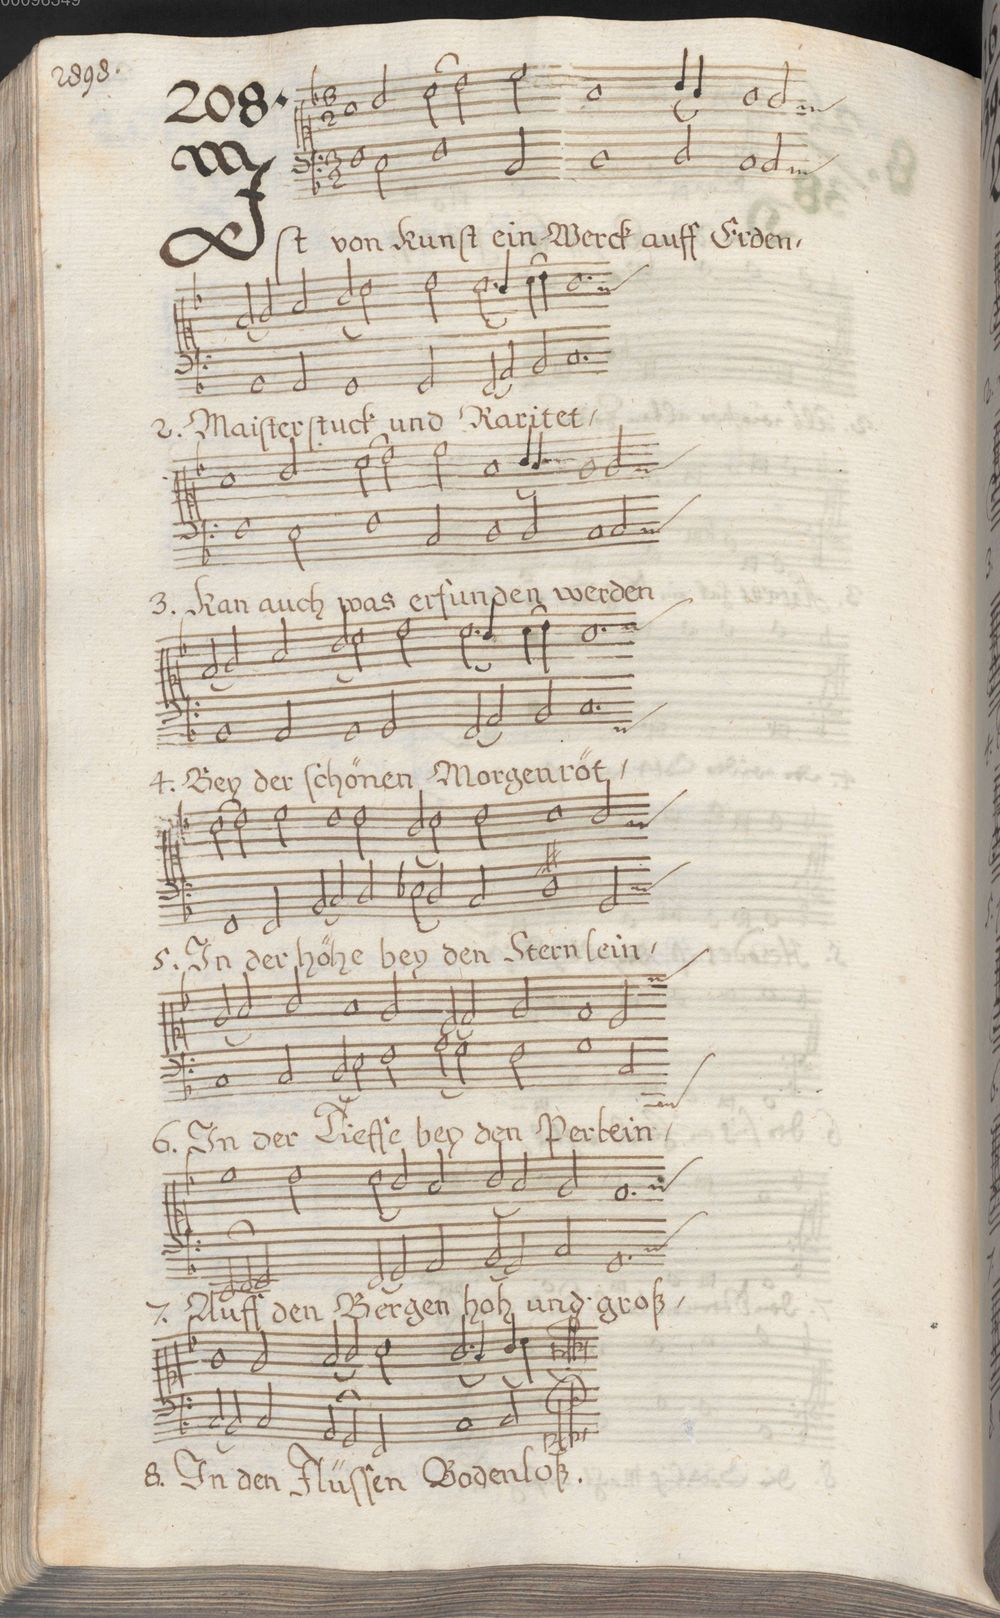 00096349
2898.
208.
m
Ist von Kunst ein Werck auff Erden,
2. Maisterstuck und Raritet,
3. Kan auch was erfunden werden
4. Bey der schönen Morgenröt,
5. In der höhe bey den Sternlein,
6. In der Tieffe bey den Perlein,
7. Auff den Bergen hoh und groß,
8. In den Flüssen Bodenloß.